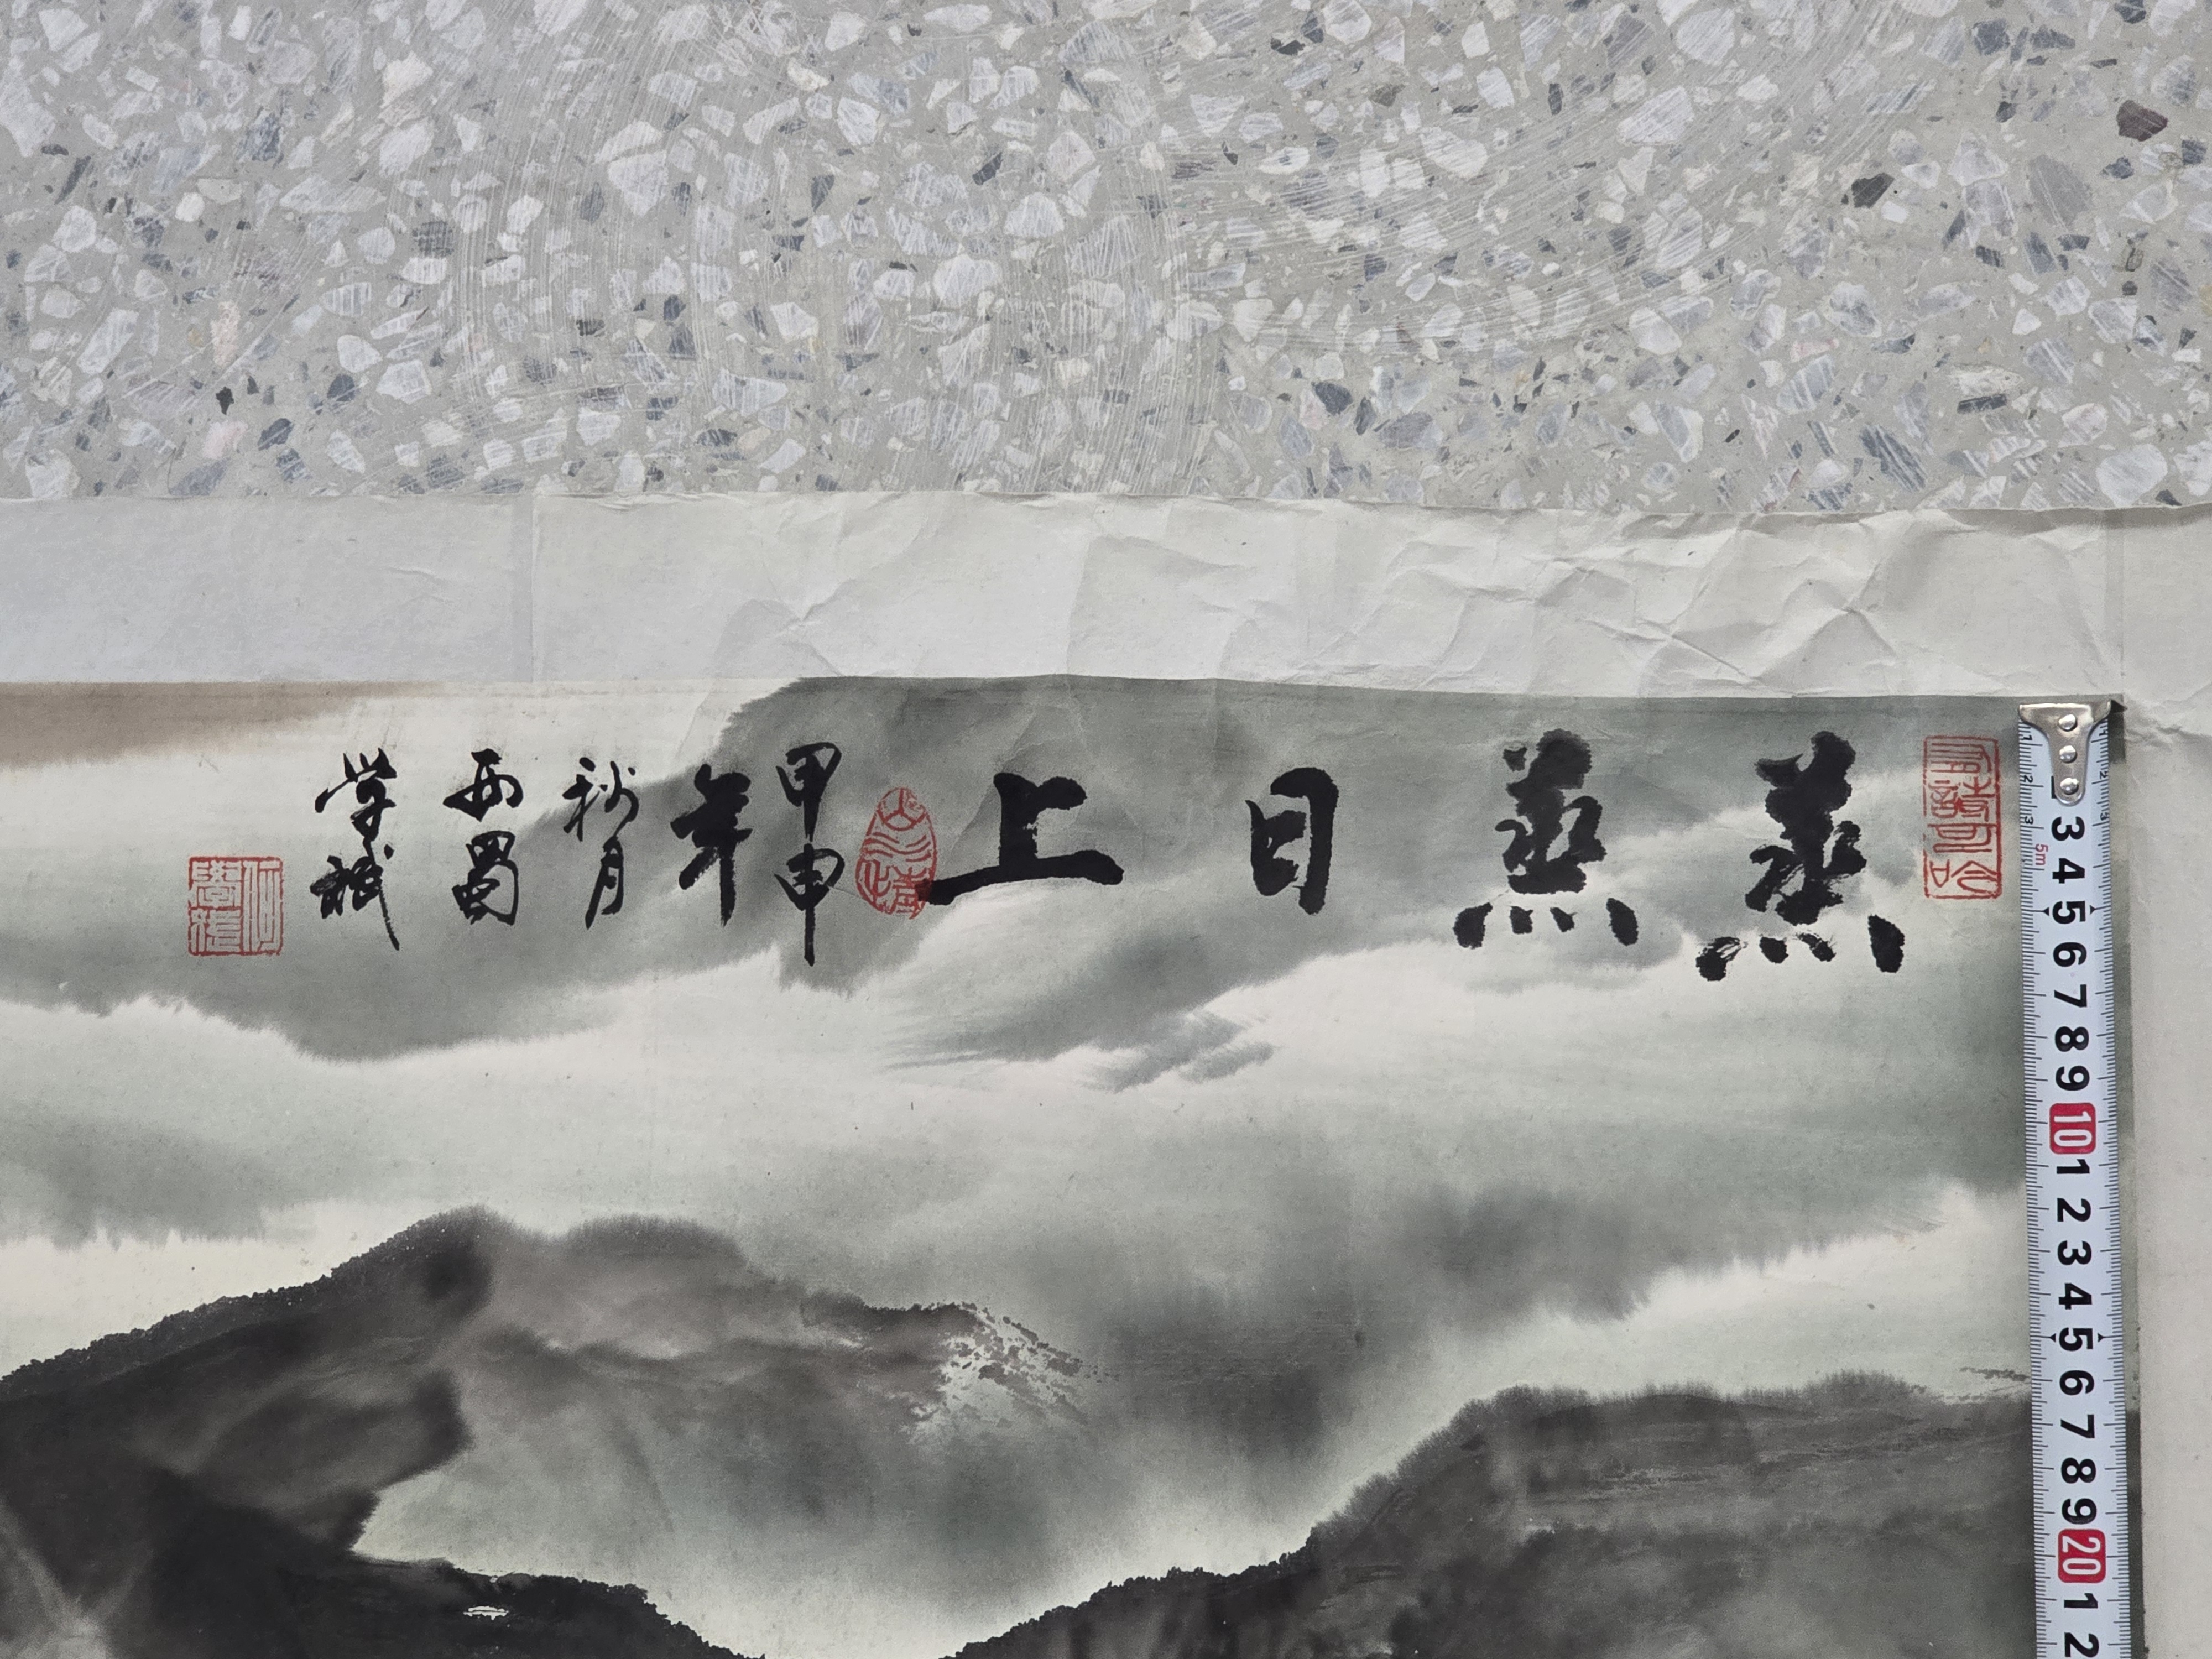 蒸蒸日上
甲申
年
秋月
西蜀
学斌
5m
1
2
3
4
5
6
7
8
9
10
1
2
3
4
5
6
7
8
9
20
1
2